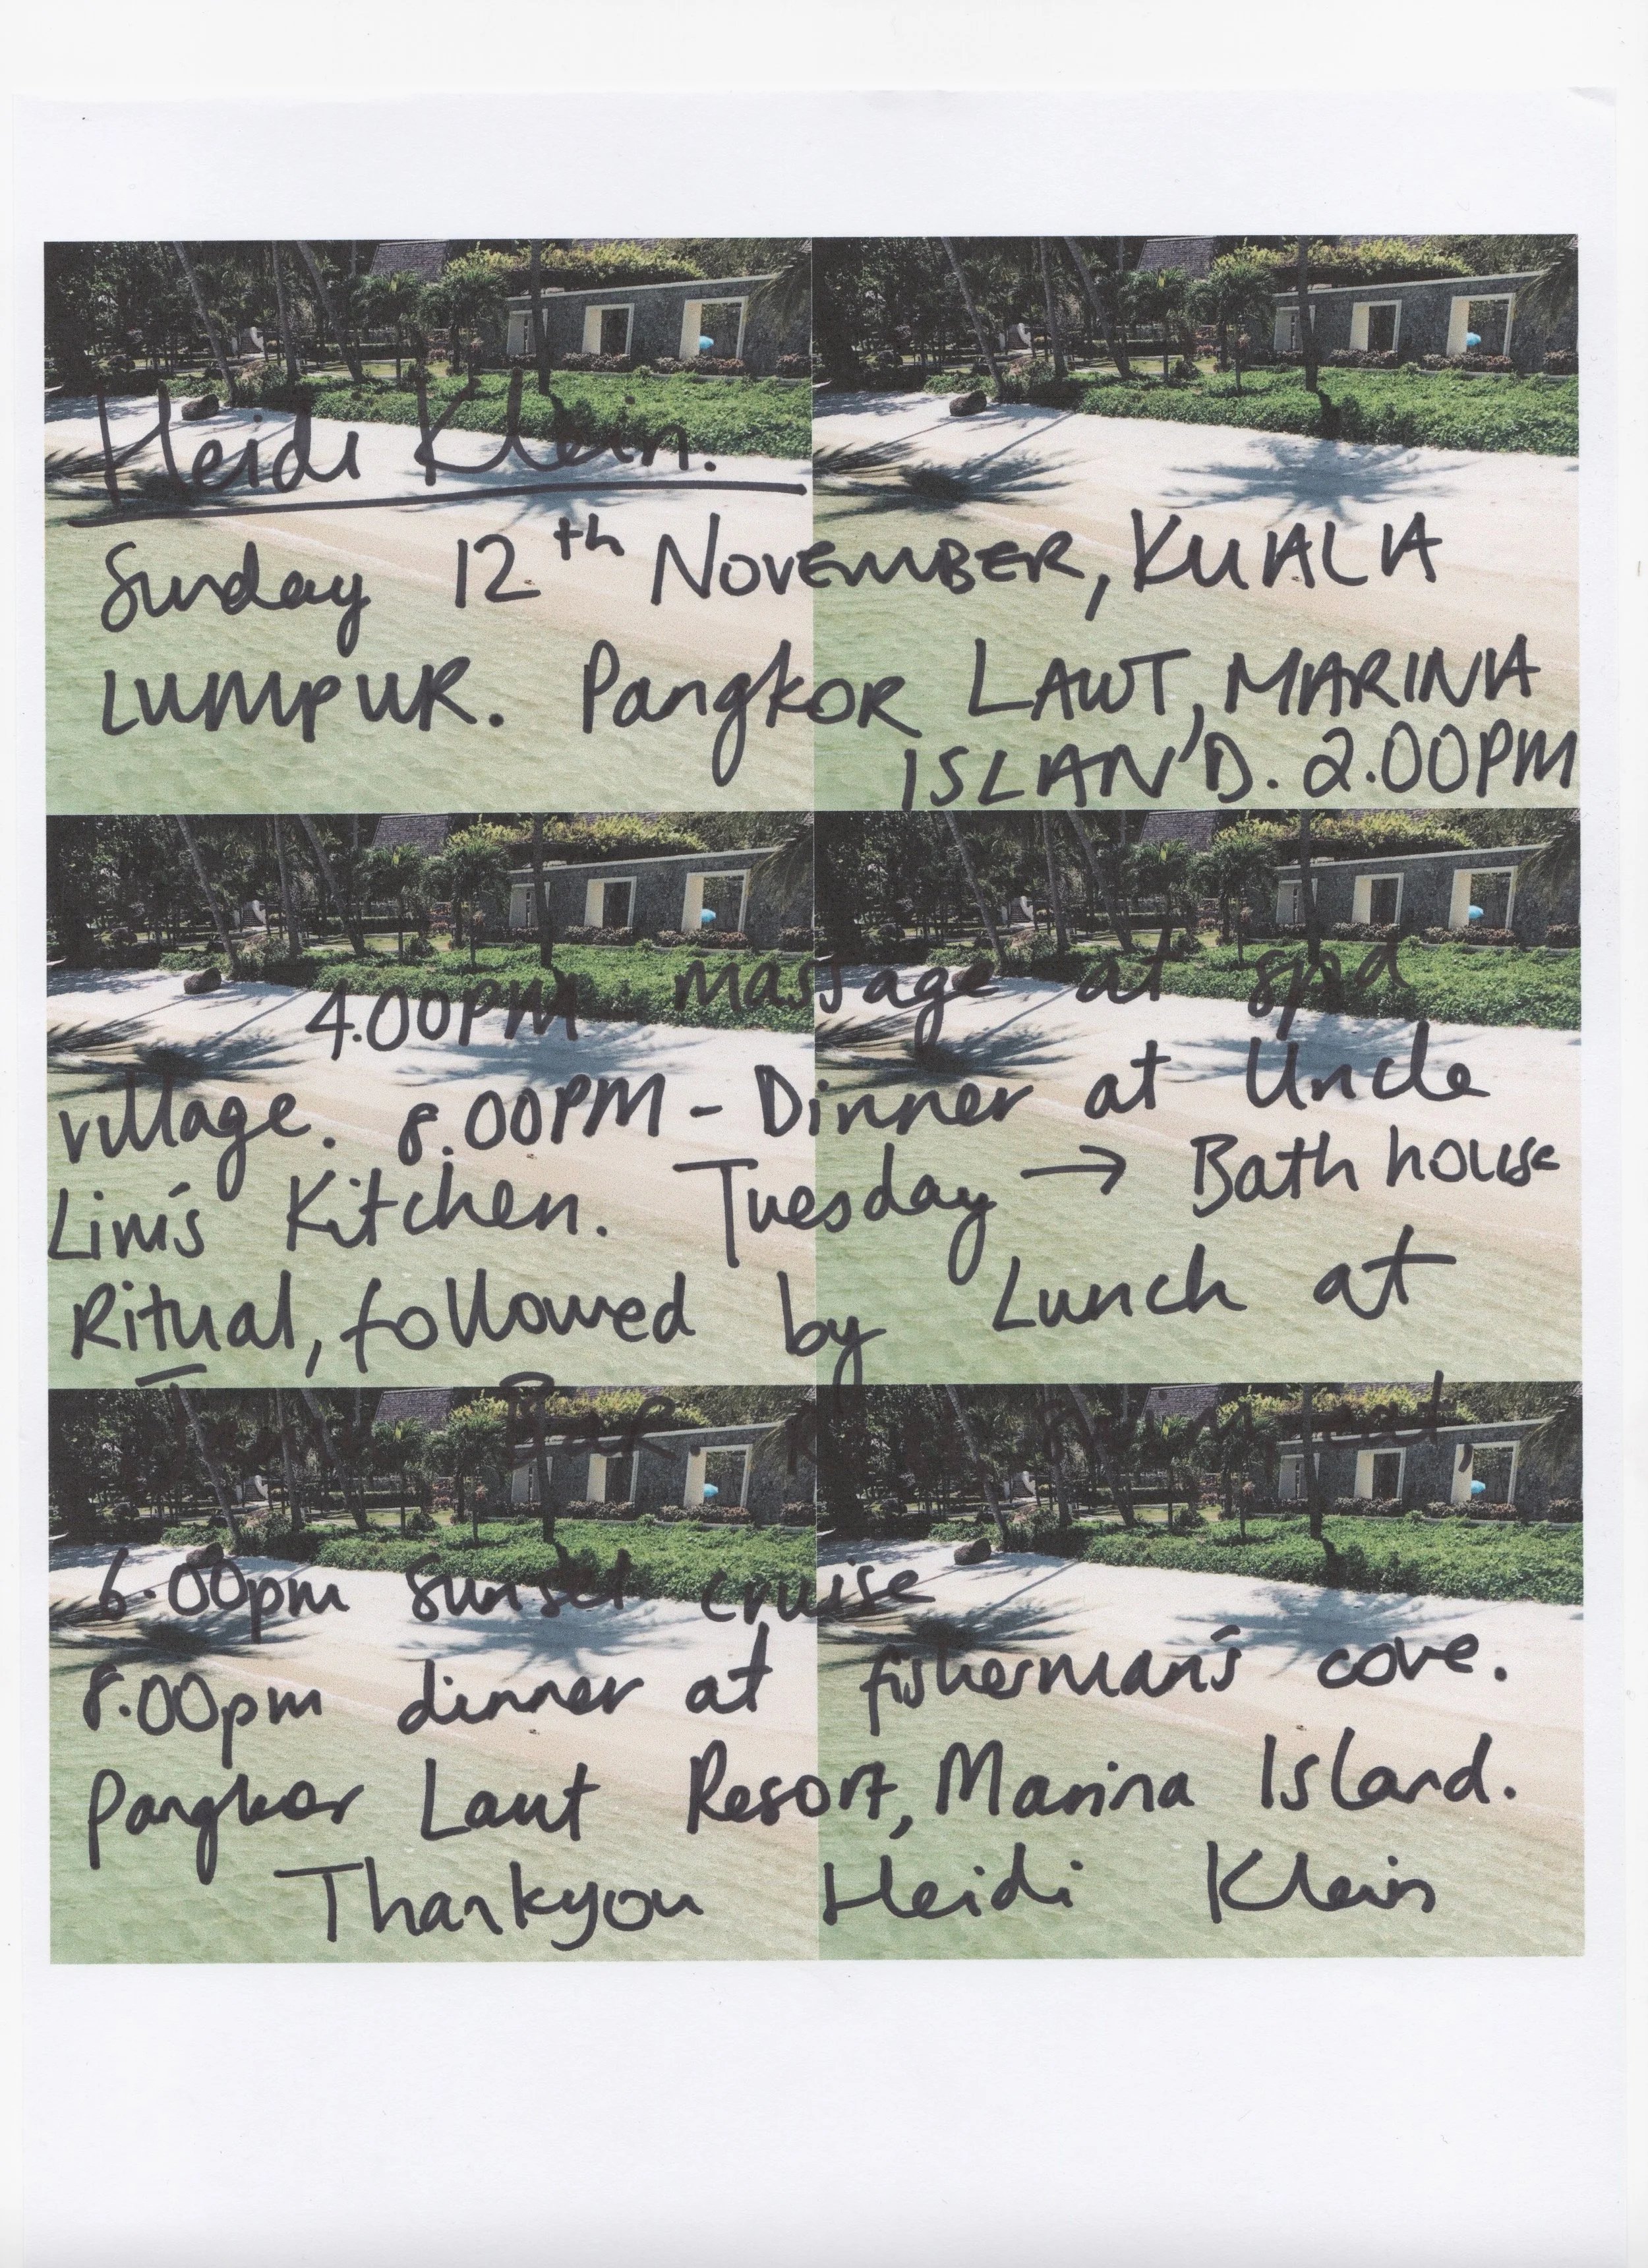 Heidi Klein.
Sunday 12th November, KUALA
LUMPUR. PangkOR LAUT, MARINA
ISLAND. 2.00PM
4.00PM massage at spa
village. 8.00PM - Dinner at Uncle
Lim's Kitchen. Tuesday → Bath house
Ritual, followed by Lunch at
Bar.
6.00pm sunset cruise
8.00pm dinner at fisherman's cove.
Pangkor Laut Resort, Marina Island.
Thankyou Heidi Klein